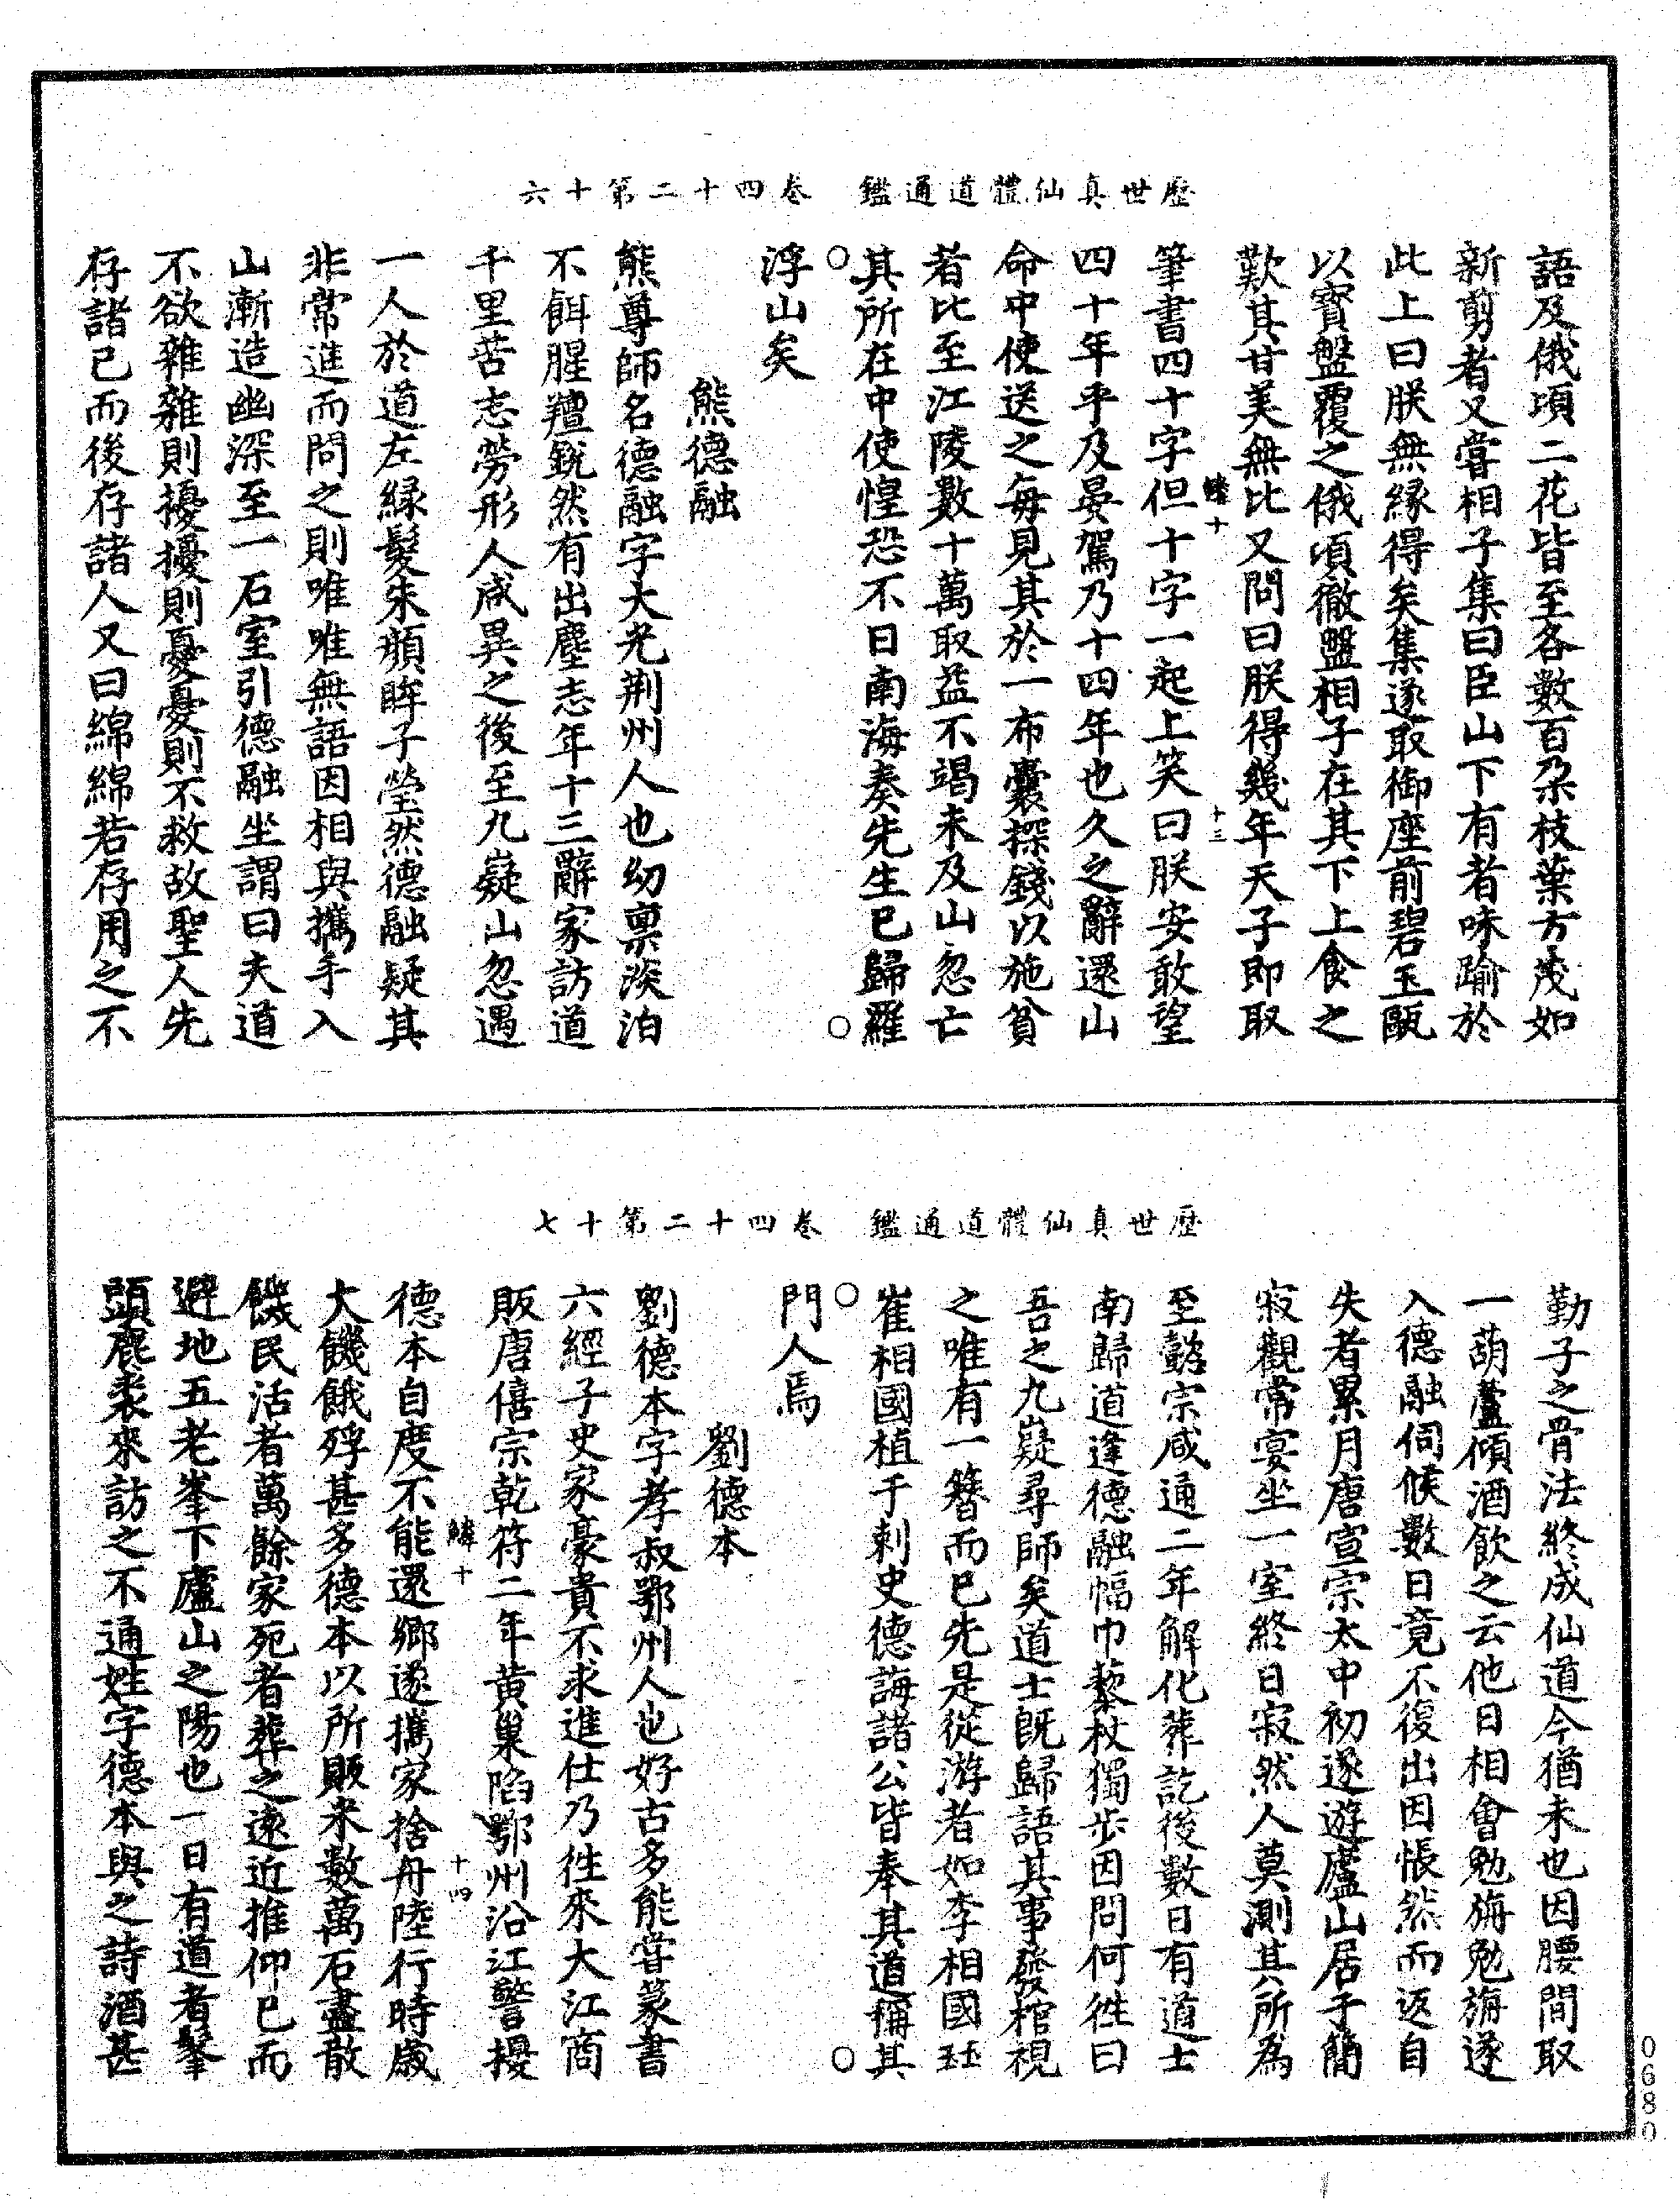 歷世真仙體道通鑑　卷四十二第十六
語及俄頃二花皆至各數百朶枝葉方茂如
新剪者又嘗相子集曰臣山下有者味踰於
此上曰朕無緣得矣集遂取御座前碧玉甌
以寶盤覆之俄頃徹盤相子在其下上食之
歎其甘美無比又問曰朕得幾年天子即取
鱗十　十三
筆書四十字但十字一起上笑曰朕安敢望
四十年乎及晏駕乃十四年也久之辭還山
命中使送之每見其於一布囊探錢以施貧
者比至江陵數十萬取益不竭未及山忽亡
其所在中使惶恐不日南海奏先生已歸羅
浮山矣
熊德融
熊尊師名德融字大光荆州人也幼禀淡泊
不餌腥羶銳然有出塵志年十三辭家訪道
千里苦志勞形人咸異之後至九嶷山忽遇
一人於道左緑髮朱顏眸子瑩然德融疑其
非常進而問之則唯唯無語因相與攜手入
山漸造幽深至一石室引德融坐謂曰夫道
不欲雜雜則擾擾則憂憂則不救故聖人先
存諸已而後存諸人又曰綿綿若存用之不
歷世真仙體道通鑑　卷四十二第十七
勤子之骨法終成仙道今猶未也因腰間取
一葫蘆傾酒飲之云他日相會勉旃勉旃遂
入德融伺候數日竟不復出因悵然而返自
失者累月唐宣宗太中初遂遊廬山居于簡
寂觀常宴坐一室終日寂然人莫測其所為
至懿宗咸通二年解化葬訖後數日有道士
南歸道逢德融幅巾藜杖獨步因問何徃曰
吾之九嶷尋師矣道士旣歸語其事發棺視
之唯有一簪而已先是從游者如李相國珏
崔相國植于刺史德誨諸公皆奉其道稱其
門人焉
劉德本
劉德本字孝叔鄂州人也好古多能嘗篆書
六經子史家豪貴不求進仕乃徃來大江商
販唐僖宗乾符二年黄巢陷鄂州沿江警擾
鱗十　十四
德本自度不能還鄉遂攜家捨舟陸行時歲
大饑餓殍甚多德本以所販米數萬石盡散
饑民活者萬餘家死者葬之遠近推仰已而
避地五老峯下廬山之陽也一日有道者髼
頭麤裘來訪之不通姓字德本與之詩酒甚
0680